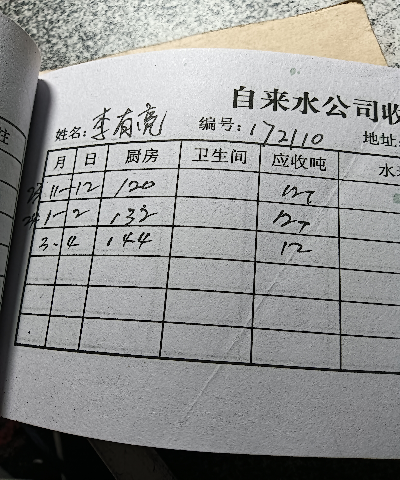 自来水公司收
姓名: 李有亮 编号: 172110 地址:
月 日 厨房 卫生间 应收吨 水
23 11-12 120 12T
24 1-2 132 12T
3-4 144 12